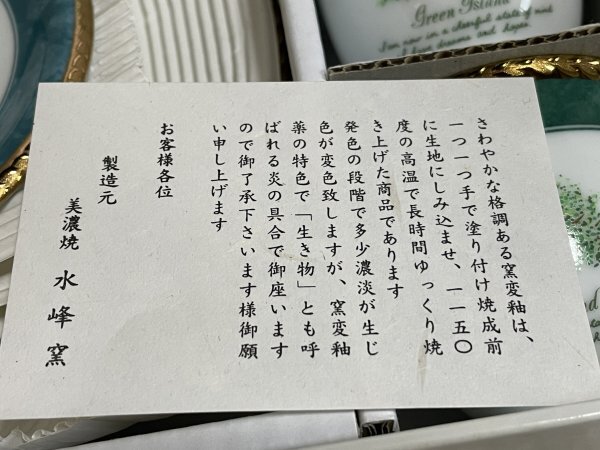 さわやかな格調ある窯変釉は、
一つ一つ手で塗り付け焼成前
に生地にしみ込ませ、一一五〇
度の高温で長時間ゆっくり焼
き上げた商品であります
発色の段階で多少濃淡が生じ
色が変色致しますが、窯変釉
薬の特色で「生き物」とも呼
ばれる炎の具合で御座います
ので御了承下さいます様御願
い申し上げます
お客様各位
製造元
美濃焼 水峰窯
Green Island
I am now in a cheerful state of mind
I have dreams and hopes.